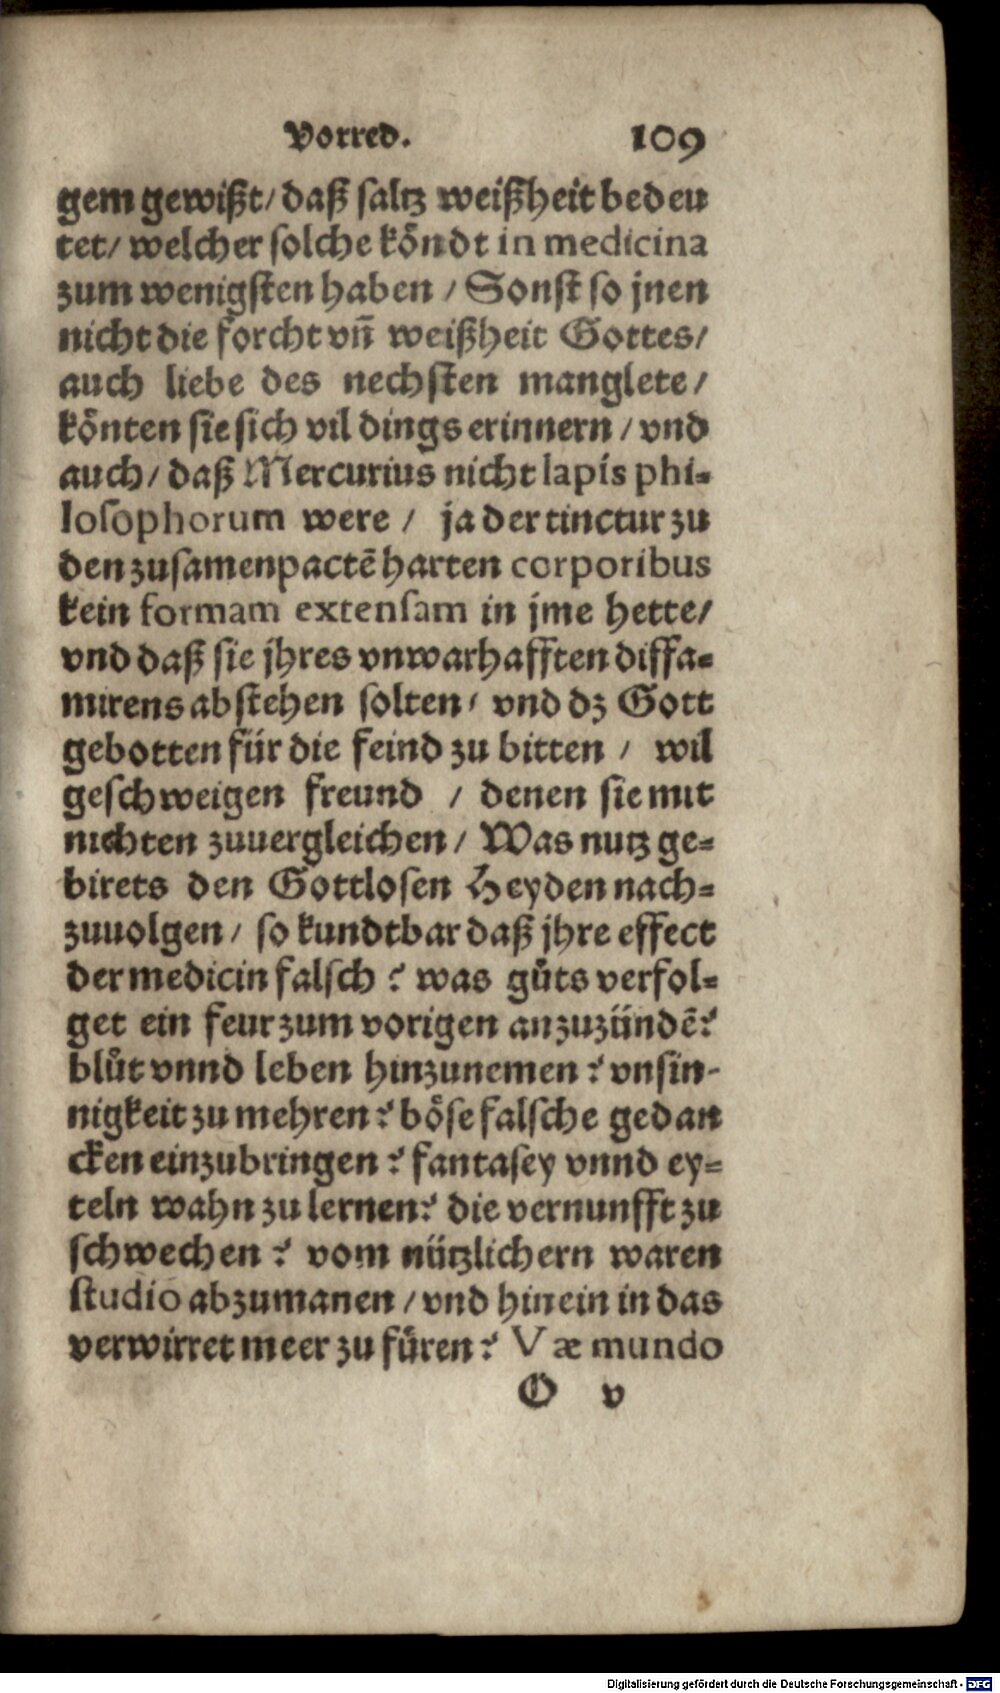 Vorred. 109
gem gewißt/ daß saltz weißheit bedeu
tet/ welcher solche köndt in medicina
zum wenigsten haben / Sonst so jnen
nicht die forcht vñ weißheit Gottes/
auch liebe des nechsten manglete/
könten sie sich vil dings erinnern / vnd
auch/ daß Mercurius nicht lapis phi-
losophorum were / ja der tinctur zu
den zusamenpactẽ harten corporibus
kein formam extensam in jme hette/
vnd daß sie jhres vnwarhafften diffa-
mirens abstehen solten/ vnd dz Gott
gebotten für die feind zu bitten / wil
geschweigen freund / denen sie mit
nichten zuuergleichen/ Was nutz ge-
birets den Gottlosen Heyden nach-
zuuolgen/ so kundtbar daß jhre effect
der medicin falsch? was gůts verfol-
get ein feur zum vorigen anzuzündẽ?
blůt vnnd leben hinzunemen? vnsin-
nigkeit zu mehren? böse falsche gedan
cken einzubringen? fantasey vnnd ey-
teln wahn zu lernen? die vernunfft zu
schwechen? vom nützlichern waren
studio abzumanen / vnd hinein in das
verwirret meer zu füren? Væ mundo
O v
Digitalisierung gefördert durch die Deutsche Forschungsgemeinschaft - DFG